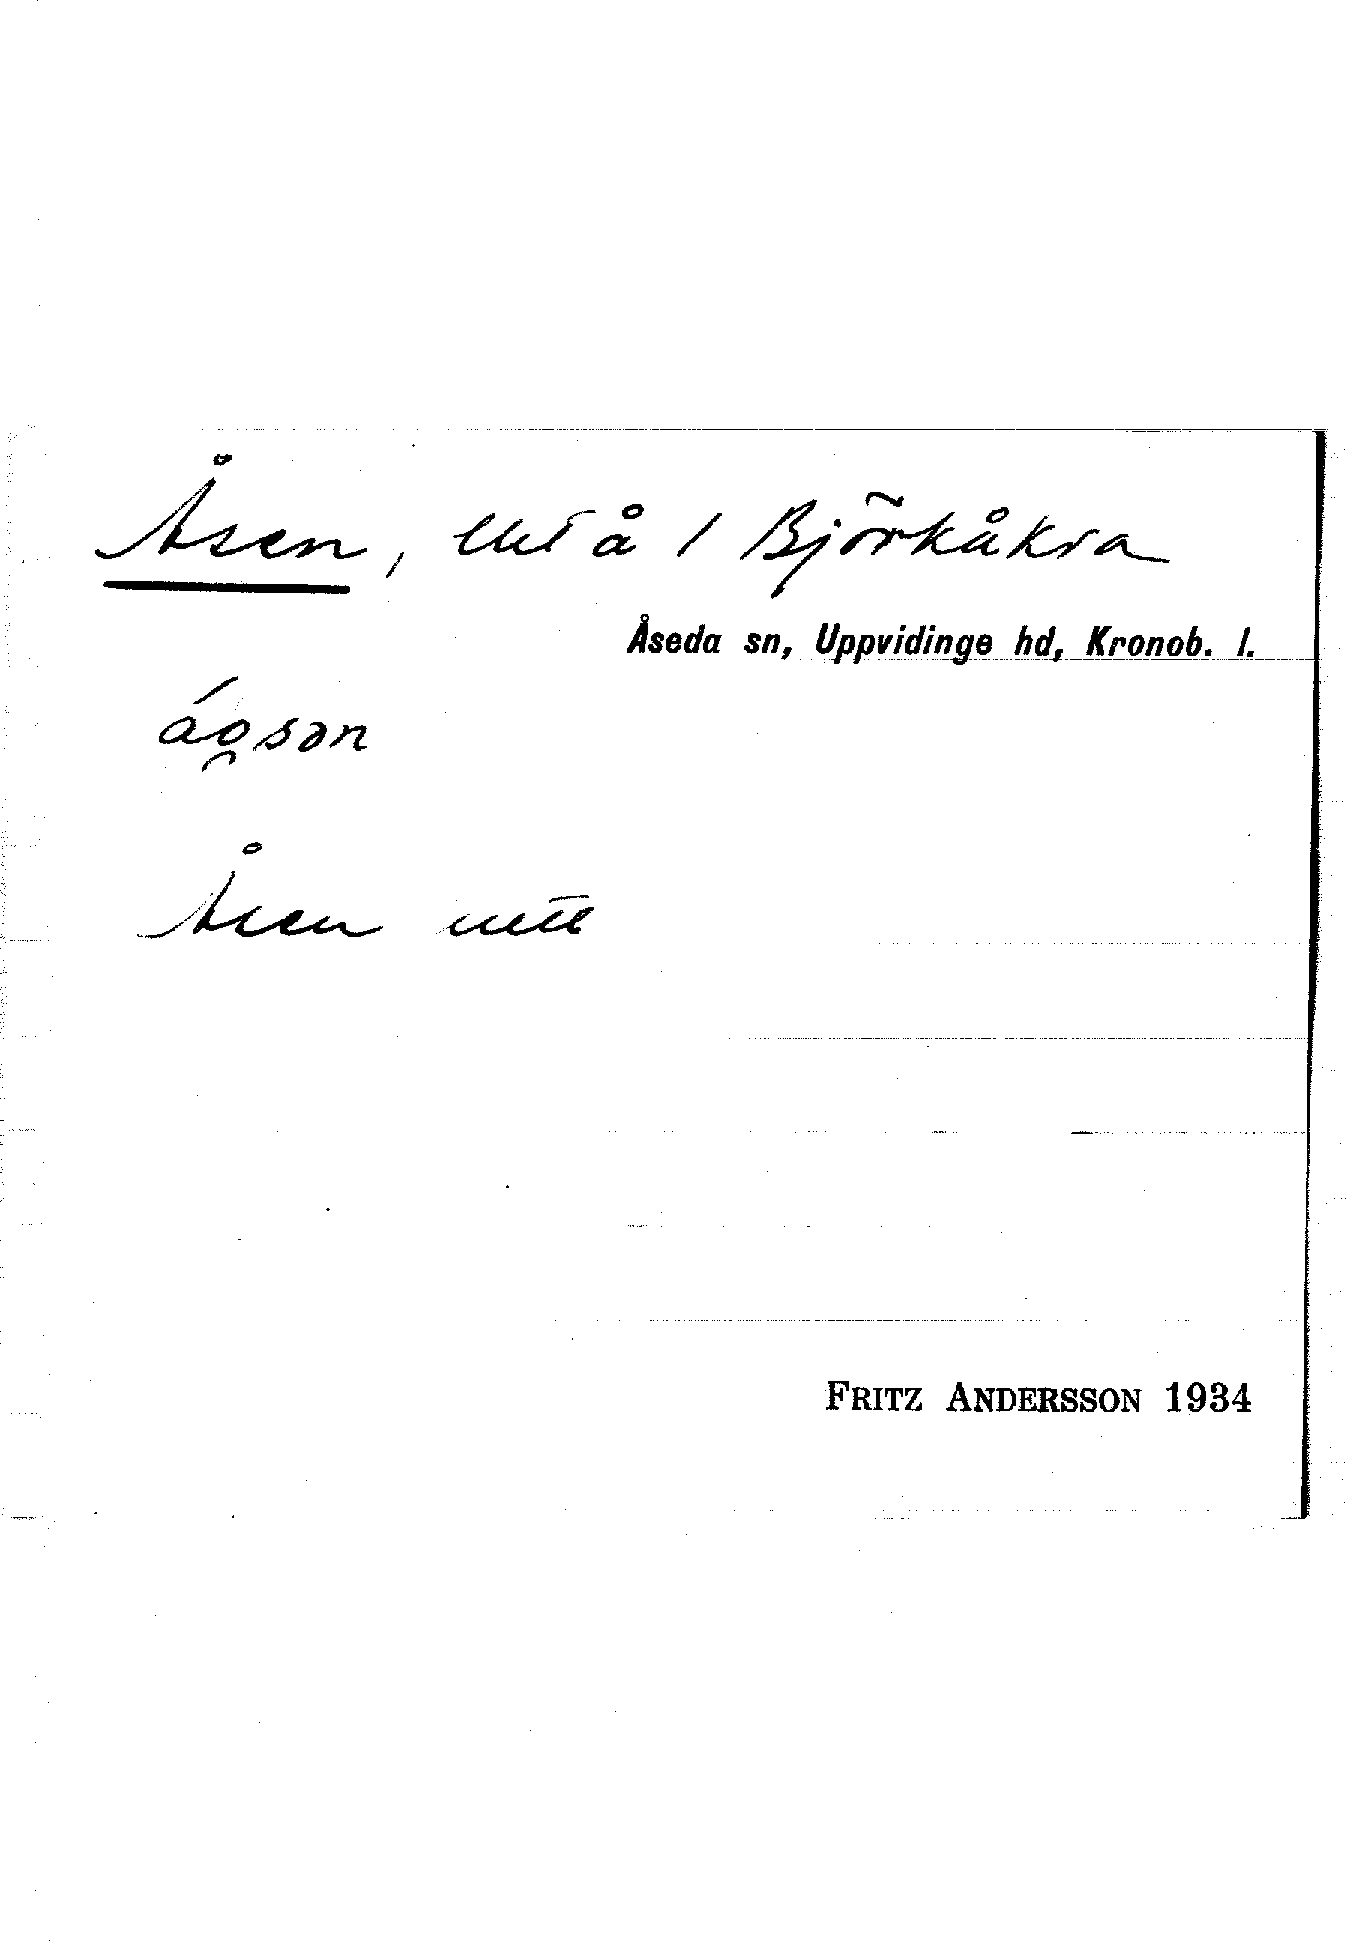 Åsen, utj å / Björkåkra
Åseda sn, Uppvidinge hd, Kronob. l.
áo̯sən
Åsen
FRITZ ANDERSSON 1934